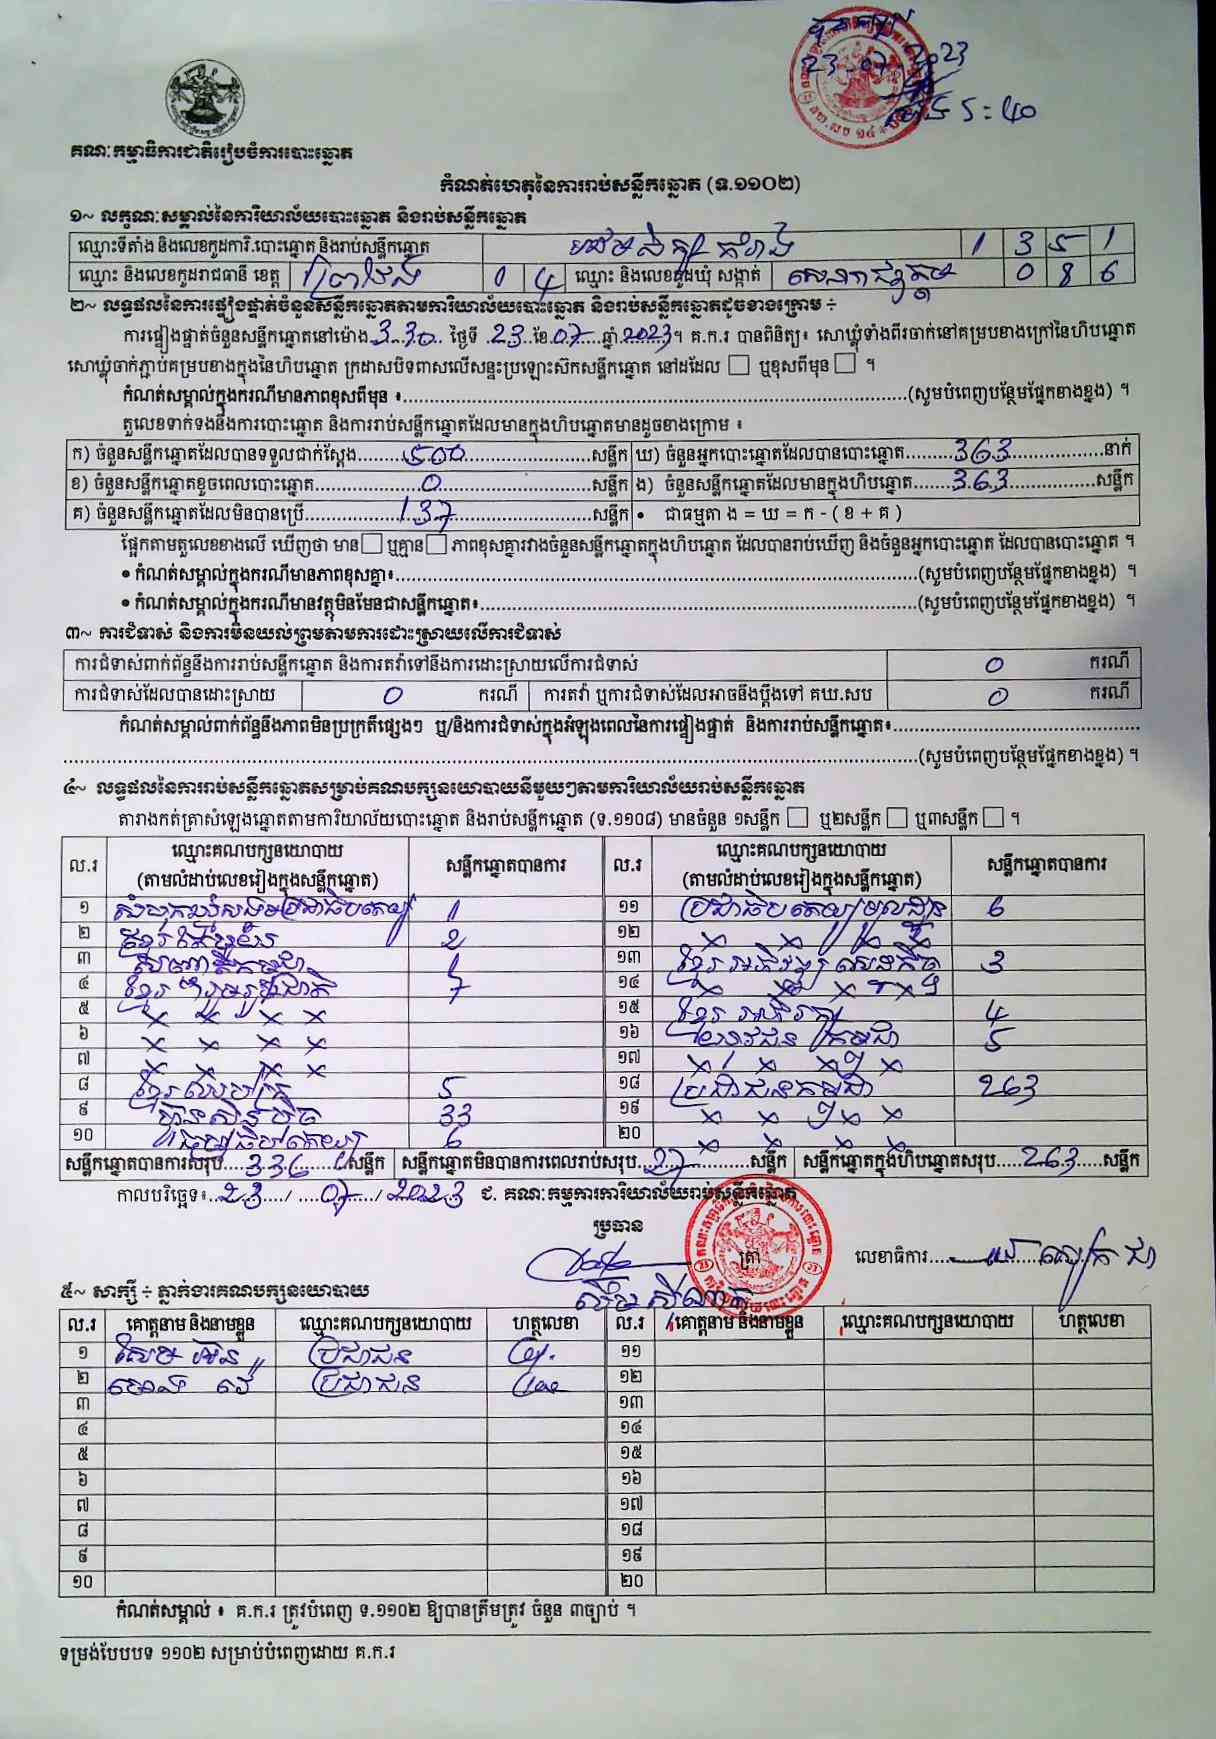 23-07-2023
5:40
គណៈកម្មាធិការជាតិរៀបចំការបោះឆ្នោត
កំណត់ហេតុនៃការរាប់សន្លឹកឆ្នោត (ទ.១១០២)
១~ លក្ខណៈសម្គាល់នៃការិយាល័យបោះឆ្នោត និងរាប់សន្លឹកឆ្នោត
ឈ្មោះទីតាំង និងលេខកូដការិ.បោះឆ្នោត និងរាប់សន្លឹកឆ្នោត 1 3 5 1
ឈ្មោះ និងលេខកូដរាជធានី ខេត្ត 0 4 ឈ្មោះ និងលេខកូដឃុំ សង្កាត់ 0 8 6
២~ លទ្ធផលនៃការផ្ទៀងផ្ទាត់ចំនួនសន្លឹកឆ្នោតតាមការិយាល័យបោះឆ្នោត និងរាប់សន្លឹកឆ្នោតដូចខាងក្រោម ÷
ការផ្ទៀងផ្ទាត់ចំនួនសន្លឹកឆ្នោតនៅម៉ោង 3:30 ថ្ងៃទី 23 ខែ 07 ឆ្នាំ 2023 ។ គ.ក.រ បានពិនិត្យ៖ សោឃ្លុំទាំងពីរចាក់នៅគម្របខាងក្រៅនៃហិបឆ្នោត
សោឃ្លុំចាក់ភ្ជាប់គម្របខាងក្នុងនៃហិបឆ្នោត ក្រដាសបិទពាសលើសន្ទះប្រឡោះស៊កសន្លឹកឆ្នោត នៅដដែល □ ឬខុសពីមុន □ ។
កំណត់សម្គាល់ក្នុងករណីមានភាពខុសពីមុន ៖ (សូមបំពេញបន្ថែមផ្នែកខាងខ្នង) ។
តួលេខទាក់ទងនឹងការបោះឆ្នោត និងការរាប់សន្លឹកឆ្នោតដែលមានក្នុងហិបឆ្នោតមានដូចខាងក្រោម ៖
ក) ចំនួនសន្លឹកឆ្នោតដែលបានទទួលជាក់ស្តែង 500 សន្លឹក ឃ) ចំនួនអ្នកបោះឆ្នោតដែលបានបោះឆ្នោត 363 នាក់
ខ) ចំនួនសន្លឹកឆ្នោតខូចពេលបោះឆ្នោត 0 សន្លឹក ង) ចំនួនសន្លឹកឆ្នោតដែលមានក្នុងហិបឆ្នោត 363 សន្លឹក
គ) ចំនួនសន្លឹកឆ្នោតដែលមិនបានប្រើ 137 សន្លឹក • ជាធម្មតា ង = ឃ = ក - ( ខ + គ )
ផ្អែកតាមតួលេខខាងលើ ឃើញថា មាន □ ឬគ្មាន □ ភាពខុសគ្នារវាងចំនួនសន្លឹកឆ្នោតក្នុងហិបឆ្នោត ដែលបានរាប់ឃើញ និងចំនួនអ្នកបោះឆ្នោត ដែលបានបោះឆ្នោត ។
• កំណត់សម្គាល់ក្នុងករណីមានភាពខុសគ្នា៖ (សូមបំពេញបន្ថែមផ្នែកខាងខ្នង) ។
• កំណត់សម្គាល់ក្នុងករណីមានវត្ថុមិនមែនជាសន្លឹកឆ្នោត៖ (សូមបំពេញបន្ថែមផ្នែកខាងខ្នង) ។
៣~ ការជំទាស់ និងការមិនយល់ព្រមតាមការដោះស្រាយលើការជំទាស់
ការជំទាស់ពាក់ព័ន្ធនឹងការរាប់សន្លឹកឆ្នោត និងការតវ៉ាទៅនឹងការដោះស្រាយលើការជំទាស់ 0 ករណី
ការជំទាស់ដែលបានដោះស្រាយ 0 ករណី ការតវ៉ា ឬការជំទាស់ដែលអាចនឹងប្តឹងទៅ គឃ.សប 0 ករណី
កំណត់សម្គាល់ពាក់ព័ន្ធនឹងភាពមិនប្រក្រតីផ្សេងៗ ឬ/និងការជំទាស់ក្នុងអំឡុងពេលនៃការផ្ទៀងផ្ទាត់ និងការរាប់សន្លឹកឆ្នោត៖
(សូមបំពេញបន្ថែមផ្នែកខាងខ្នង) ។
៤~ លទ្ធផលនៃការរាប់សន្លឹកឆ្នោតសម្រាប់គណបក្សនយោបាយនីមួយៗតាមការិយាល័យរាប់សន្លឹកឆ្នោត
តារាងកត់ត្រាសំឡេងឆ្នោតតាមការិយាល័យបោះឆ្នោត និងរាប់សន្លឹកឆ្នោត (ទ.១១០៨) មានចំនួន ១សន្លឹក □ ឬ២សន្លឹក □ ឬ៣សន្លឹក □ ។
ល.រ ឈ្មោះគណបក្សនយោបាយ សន្លឹកឆ្នោតបានការ ល.រ ឈ្មោះគណបក្សនយោបាយ សន្លឹកឆ្នោតបានការ
(តាមលំដាប់លេខរៀងក្នុងសន្លឹកឆ្នោត) (តាមលំដាប់លេខរៀងក្នុងសន្លឹកឆ្នោត)
១ 1 ១១ ប្រជាធិបតេយ្យមូលដ្ឋាន 6
២ 2 ១២ x x x x
៣ 1 ១៣ ខ្មែរអភិវឌ្ឍន៍សេដ្ឋកិច្ច 3
៤ ខ្មែររួបរួមជាតិ 7 ១៤ x x x x
៥ x x x x ១៥ ខ្មែរ 4
៦ x x x x ១៦ យុវជនកម្ពុជា 5
៧ x x x x ១៧ x x x x
៨ 5 ១៨ ប្រជាជនកម្ពុជា 263
៩ ហ្វ៊ុនស៊ិនប៉ិច 33 ១៩ x x x x
១០ 6 ២០ x x x x
សន្លឹកឆ្នោតបានការសរុប 336 សន្លឹក សន្លឹកឆ្នោតមិនបានការពេលរាប់សរុប 27 សន្លឹក សន្លឹកឆ្នោតក្នុងហិបឆ្នោតសរុប 263 សន្លឹក
កាលបរិច្ឆេទ៖ 23 / 07 / 2023 ជ. គណៈកម្មការការិយាល័យរាប់សន្លឹកឆ្នោត
ប្រធាន
ត្រា លេខាធិការ
៥~ សាក្សី ÷ ភ្នាក់ងារគណបក្សនយោបាយ
ល.រ គោត្តនាម និងនាមខ្លួន ឈ្មោះគណបក្សនយោបាយ ហត្ថលេខា ល.រ គោត្តនាម និងនាមខ្លួន ឈ្មោះគណបក្សនយោបាយ ហត្ថលេខា
១ ប្រជាជន ១១
២ ប្រជាជន ១២
៣ ១៣
៤ ១៤
៥ ១៥
៦ ១៦
៧ ១៧
៨ ១៨
៩ ១៩
១០ ២០
កំណត់សម្គាល់ ៖ គ.ក.រ ត្រូវបំពេញ ទ.១១០២ ឱ្យបានត្រឹមត្រូវ ចំនួន ៣ច្បាប់ ។
ទម្រង់បែបបទ ១១០២ សម្រាប់បំពេញដោយ គ.ក.រ